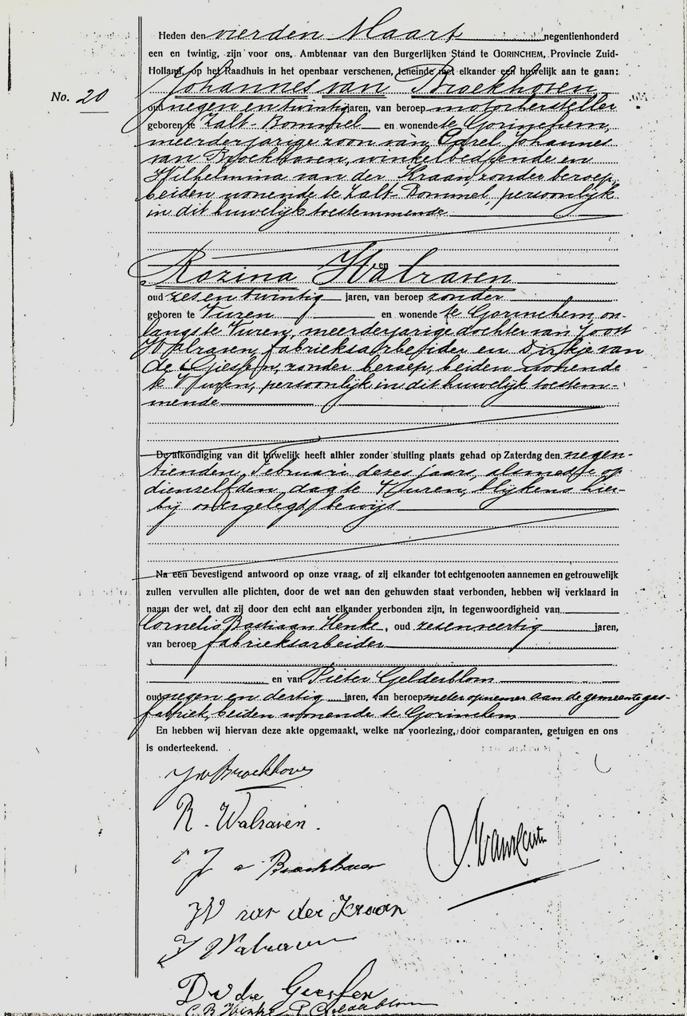 Heden den vierden Maart negentienhonderd
een en twintig, zijn voor ons, Ambtenaar van den Burgerlijken Stand te GORINCHEM, Provincie Zuid-
Holland, op het Raadhuis in het openbaar verschenen, teneinde met elkander een huwelijk aan te gaan:
No. 20
Johannes van Broekhoven
oud negen en twintig jaren, van beroep motorhersteller
geboren te Zalt-Bommel en wonende te Gorinchem,
meerderjarige zoon van Carel Johannes
van Broekhoven, winkelbediende en
Wilhelmina van der Kraan, zonder beroep,
beiden wonende te Zalt-Bommel, persoonlijk
in dit huwelijk toestemmende
en
Rozina Walraven
oud zes en twintig jaren, van beroep zonder
geboren te Vuren en wonende te Gorinchem, on-
langs te Vuren, meerderjarige dochter van Joost
Walraven, fabrieksarbeider en Dirkje van
de Giessen, zonder beroep, beiden wonende
te Vuren, persoonlijk in dit huwelijk toestem-
mende
De afkondiging van dit huwelijk heeft alhier zonder stuiting plaats gehad op Zaterdag den negen-
tienden Februari dezes jaars, alsmede op
dienzelfden dag te Vuren, blijkens hier-
bij overgelegd bewijs
Na een bevestigend antwoord op onze vraag, of zij elkander tot echtgenooten aannemen en getrouwelijk
zullen vervullen alle plichten, door de wet aan den gehuwden staat verbonden, hebben wij verklaard in
naam der wet, dat zij door den echt aan elkander verbonden zijn, in tegenwoordigheid van
Cornelis Bastiaan Henke, oud zesenveertig jaren,
van beroep fabrieksarbeider
en van Pieter Gelderblom
oud negen en dertig jaren, van beroep meteropnemer aan de gemeente gas-
fabriek, beiden wonende te Gorinchem
En hebben wij hiervan deze akte opgemaakt, welke na voorlezing, door comparanten, getuigen en ons
is onderteekend.
J v Broekhoven
R. Walraven.
J v Broekhoven
W van der Kraan
J Walraven
D v de Giessen
C. B. Henke P. Gelderblom